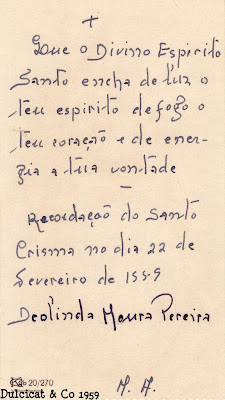 +
Que o Divino Espirito
Santo encha de luz o
teu espirito de fogo o
teu coração e de ener-
gia a tua vontade
—
Recordação do Santo
Crisma no dia 22 de
Fevereiro de 1959
Deolinda Moura Pereira
20/270
M. A.
Dulcicat & Co 1959